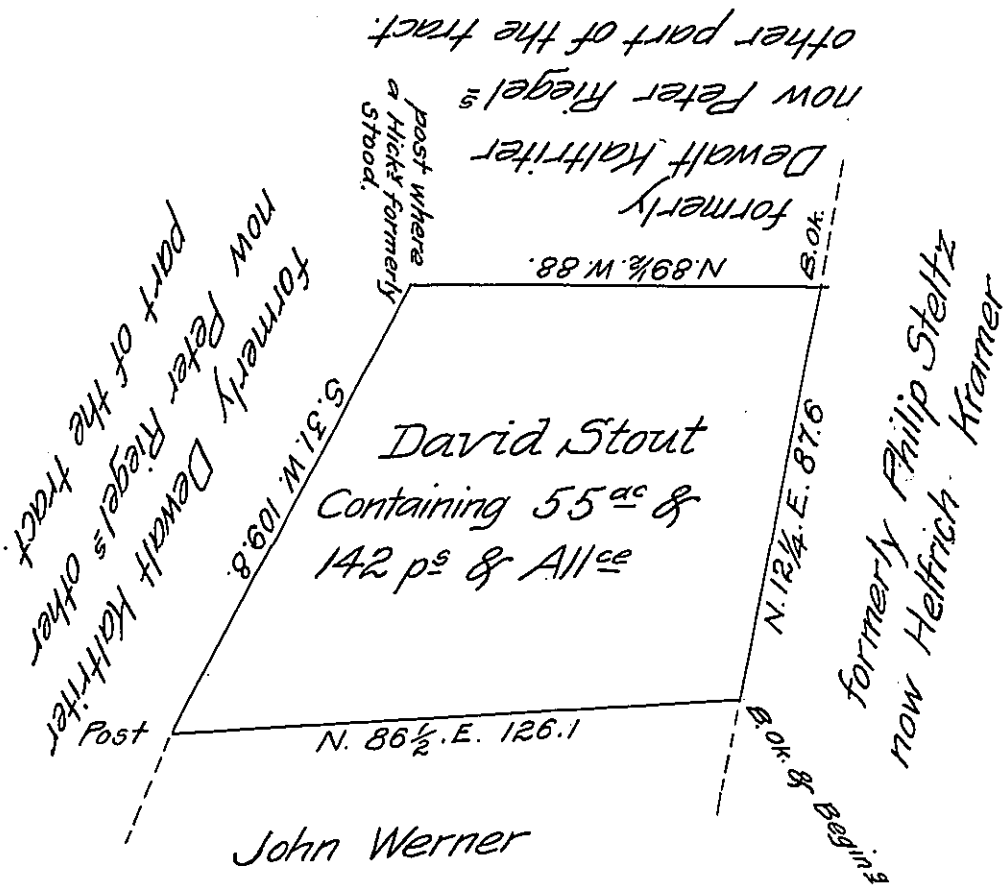 formerly
Dewalt Kaltriter
now Peter Riegel's
other part of the tract.
post where
a Hick.y formerly
Stood.
B.Ok.
N.89½.W.88.
formerly Dewalt Kaltriter
now Peter Riegel's other
part of the tract.
S.31.W. 109.8.
David Stout
Containing 55 ac &
142 ps & Allce
N.12¼.E. 87.6
formerly Philip Steltz
now Helfrich Kramer
Post
N. 86½.E. 126.1
B.Ok. & Beging
John Werner